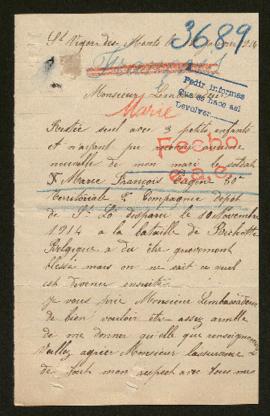 St Vigor des Monts le
3689
Pedir informes
que es hace así
Devolver.
Monsieur Lembassadeur
Marie
Restée seul avec 3 petits enfants
et n'ayant pu recevoir aucune
nouvelle de mon mari le soldat
Fecho
Marie François Eugène 80e
Territoriale 2e Compagnie dépôt
de St Lo disparu le 10 Novembre
1914 a la bataille de
Belgique a du être gravement
blessé mais on ne sait ce quil
est devenu ensuite
je vous prie Monsieur Lembassadeur
de bien vouloir être assez aimable
de me donner quelle que renseignements
Veuillez agréer Monsieur lassurance
de tout mon respect avec tous mes